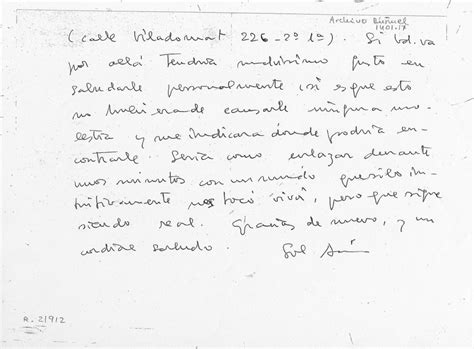 Archivo Buñuel
1401.17
(calle Viladomat 226-2º 1ª). Si Vd. va
por allá tendría muchísimo gusto en
saludarle personalmente (si es que esto
no hubiera de causarle ninguna mo-
lestia y me indicara donde podría en-
contrarle. Sería como enlazar durante
unos minutos con un mundo que sólo in-
tuitivamente nos tocó vivir, pero que sigue
siendo real. Gracias de nuevo, y un
cordial saludo.
Sol
A. 2/9/2